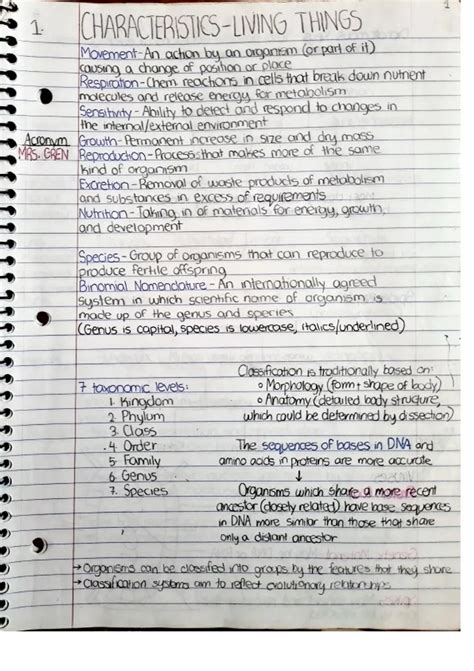 1.
CHARACTERISTICS-LIVING THINGS
Movement-An action by an organism (or part of it)
causing a change of position or place
Respiration-Chem reactions in cells that break down nutrient
molecules and release energy for metabolism
Sensitivity-Ability to detect and respond to changes in
the internal/external environment
Acronym
MRS. GREN
Growth-Permanent increase in size and dry mass
Reproduction-Process that makes more of the same
kind of organism
Excretion-Removal of waste products of metabolism
and substances in excess of requirements
Nutrition-Taking in of materials for energy, growth,
and development
Species-Group of organisms that can reproduce to
produce fertile offspring
Binomial Nomenclature-An internationally agreed
system in which scientific name of organism is
made up of the genus and species
(Genus is capital, species is lowercase, italics/underlined)
Classification is traditionally based on:
o Morphology (form + shape of body)
o Anatomy (detailed body structure,
which could be determined by dissection)
7 taxonomic levels:
1. Kingdom
2. Phylum
3. Class
4. Order
5. Family
6. Genus
7. Species
The sequences of bases in DNA and
amino acids in proteins are more accurate
↓
Organisms which share a more recent
ancestor (closely related) have base sequences
in DNA more similar than those that share
only a distant ancestor
→Organisms can be classified into groups by the features that they share
→Classification systems aim to reflect evolutionary relationships